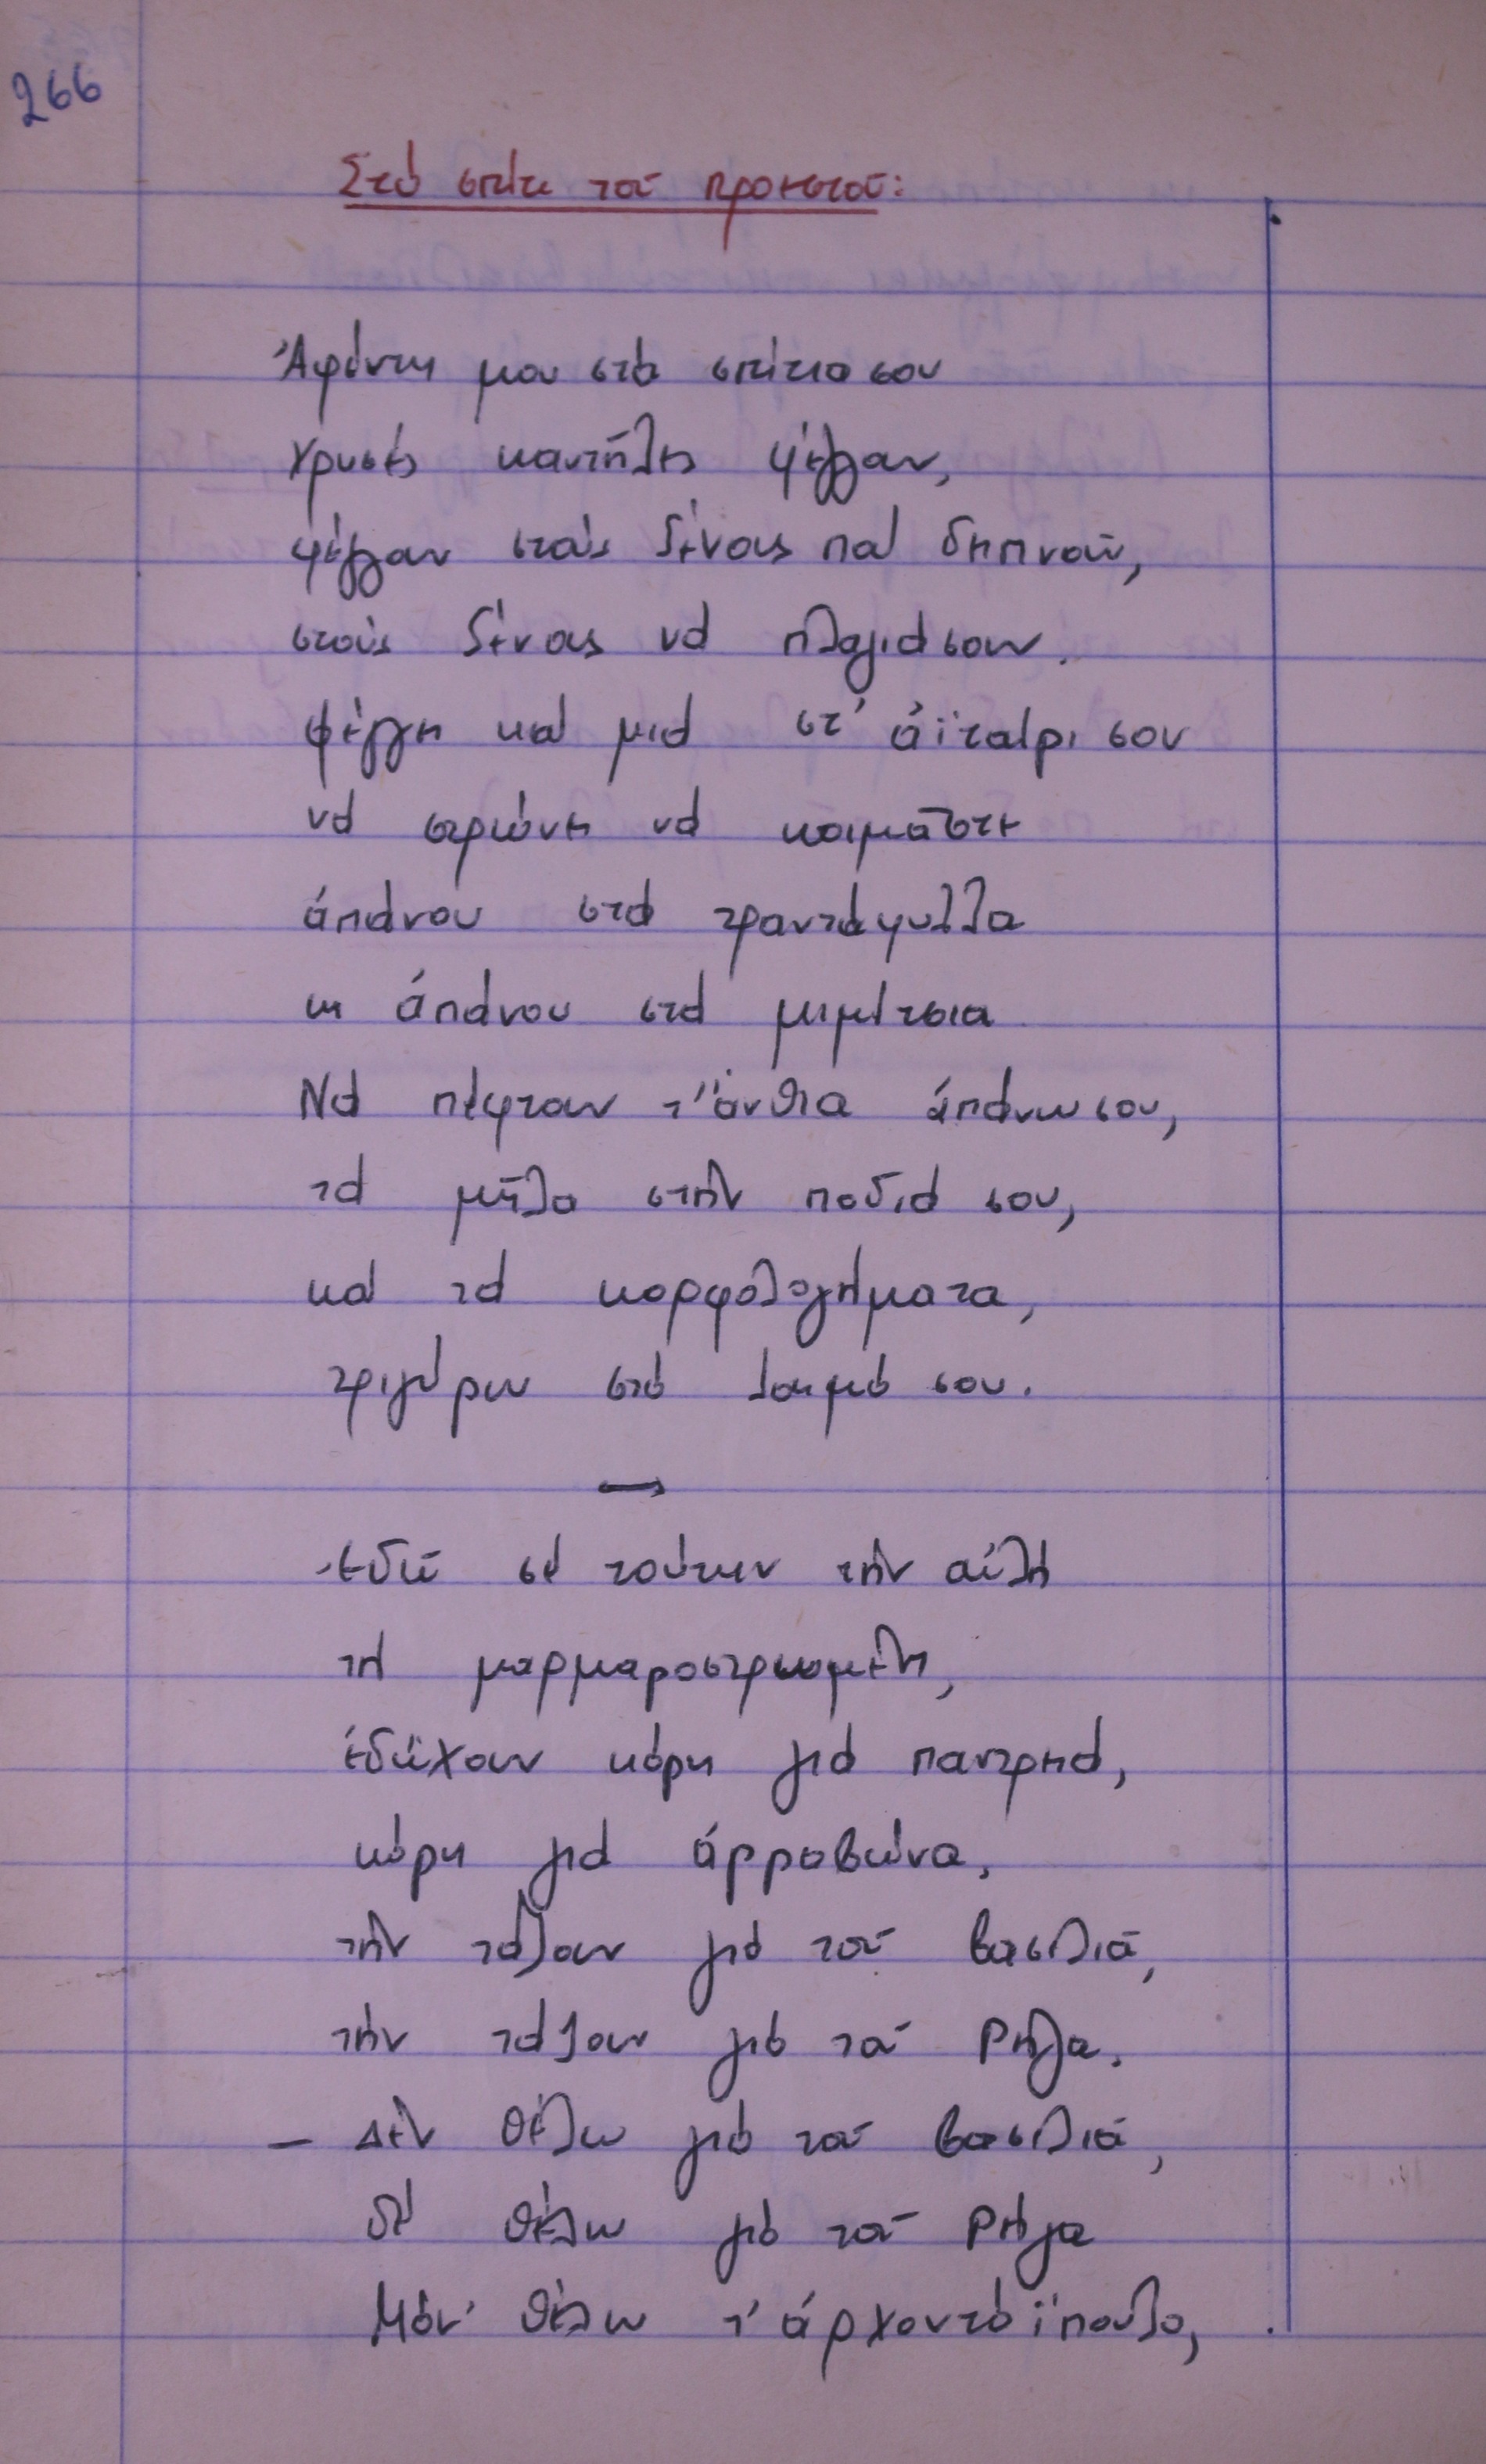 266
Στό σπίτι τοῦ προεστοῦ:
Ἀφέντη μου στά σπίτια σου
χρυσές καντήλες φέγγαν,
φέγγαν στούς ξένους πού δειπνοῦν,
στούς ξένους νά πλαγιάσουν.
φέγγει καί μιά στ' ἀϊταίρι σου
νά στρώνει νά κοιμᾶστε
ἀπάνου στά τραντάφυλλα
κι ἀπάνου στά μιμίτσια
Νά πέφτουν τ' ἄνθια ἀπάνω σου,
τά μῆλα στήν ποδιά σου,
καί τά κορφολογήματα,
τριγύρω στό λαιμό σου.
Ἐδῶ σέ τούτην τήν αὐλή
τή μαρμαροστρωμένη,
ἐδῶχουν κόρη γιά παντρειά,
κόρη γιά ἀρροβώνα,
τήν τάζουν γιό τοῦ βασιλιᾶ,
τήν τάζουν γιό τοῦ Ρήγα.
– Δέν θέλω γιό τοῦ βασιλιᾶ,
δέ θέλω γιό τοῦ Ρήγα
Μόν' θέλω τ' ἀρχοντόϊπουλο,